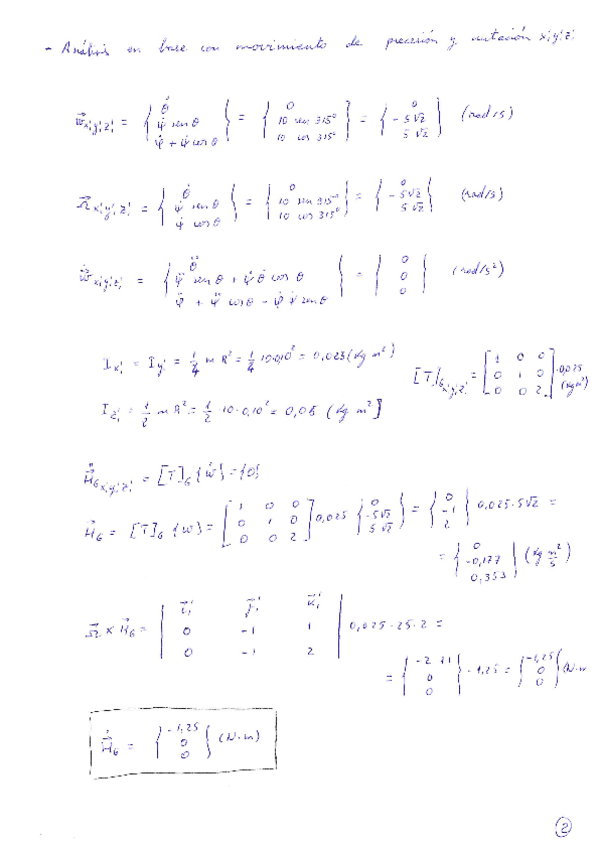 - Análisis en base con movimiento de precesión y nutación x'₁y'₁z'₁
ω⃗x'₁y'₁z'₁ = { θ̇ ; ψ̇ sen θ ; φ̇ + ψ̇ cos θ } = { 0 ; 10 sen 315° ; 10 cos 315° } = { 0 ; -5√2 ; 5√2 } (rad/s)
Ω⃗x'₁y'₁z'₁ = { θ̇ ; ψ̇ sen θ ; ψ̇ cos θ } = { 0 ; 10 sen 315° ; 10 cos 315° } = { 0 ; -5√2 ; 5√2 } (rad/s)
ω̇⃗x'₁y'₁z'₁ = { θ̈ ; ψ̈ sen θ + ψ̇ θ̇ cos θ ; φ̈ + ψ̈ cos θ - ψ̇ θ̇ sen θ } = { 0 ; 0 ; 0 } (rad/s²)
Ix'₁ = Iy'₁ = 1/4 m R² = 1/4 10·0,10² = 0,025 (kg m²)
[T]Gx'₁y'₁z'₁ = [ 1 0 0 ; 0 1 0 ; 0 0 2 ] ·0,025 (kg m²)
Iz'₁ = 1/2 m R² = 1/2 · 10 · 0,10² = 0,05 (kg m²)
Ḣ⃗Gx'₁y'₁z'₁ = [T]G {ω̇} = {0}
H⃗G = [T]G {ω} = [ 1 0 0 ; 0 1 0 ; 0 0 2 ] 0,025 { 0 ; -5√2 ; 5√2 } = { 0 ; -1 ; 2 } 0,025·5√2 =
= { 0 ; -0,177 ; 0,353 } (kg m²/s)
Ω⃗ x H⃗G = | i⃗'₁ j⃗'₁ k⃗'₁ ; 0 -1 1 ; 0 -1 2 | 0,025 · 25 · 2 =
= { -2 +1 ; 0 ; 0 } · 1,25 = { -1,25 ; 0 ; 0 } (N·m
Ḣ⃗G = { -1,25 ; 0 ; 0 } (N·m)
2